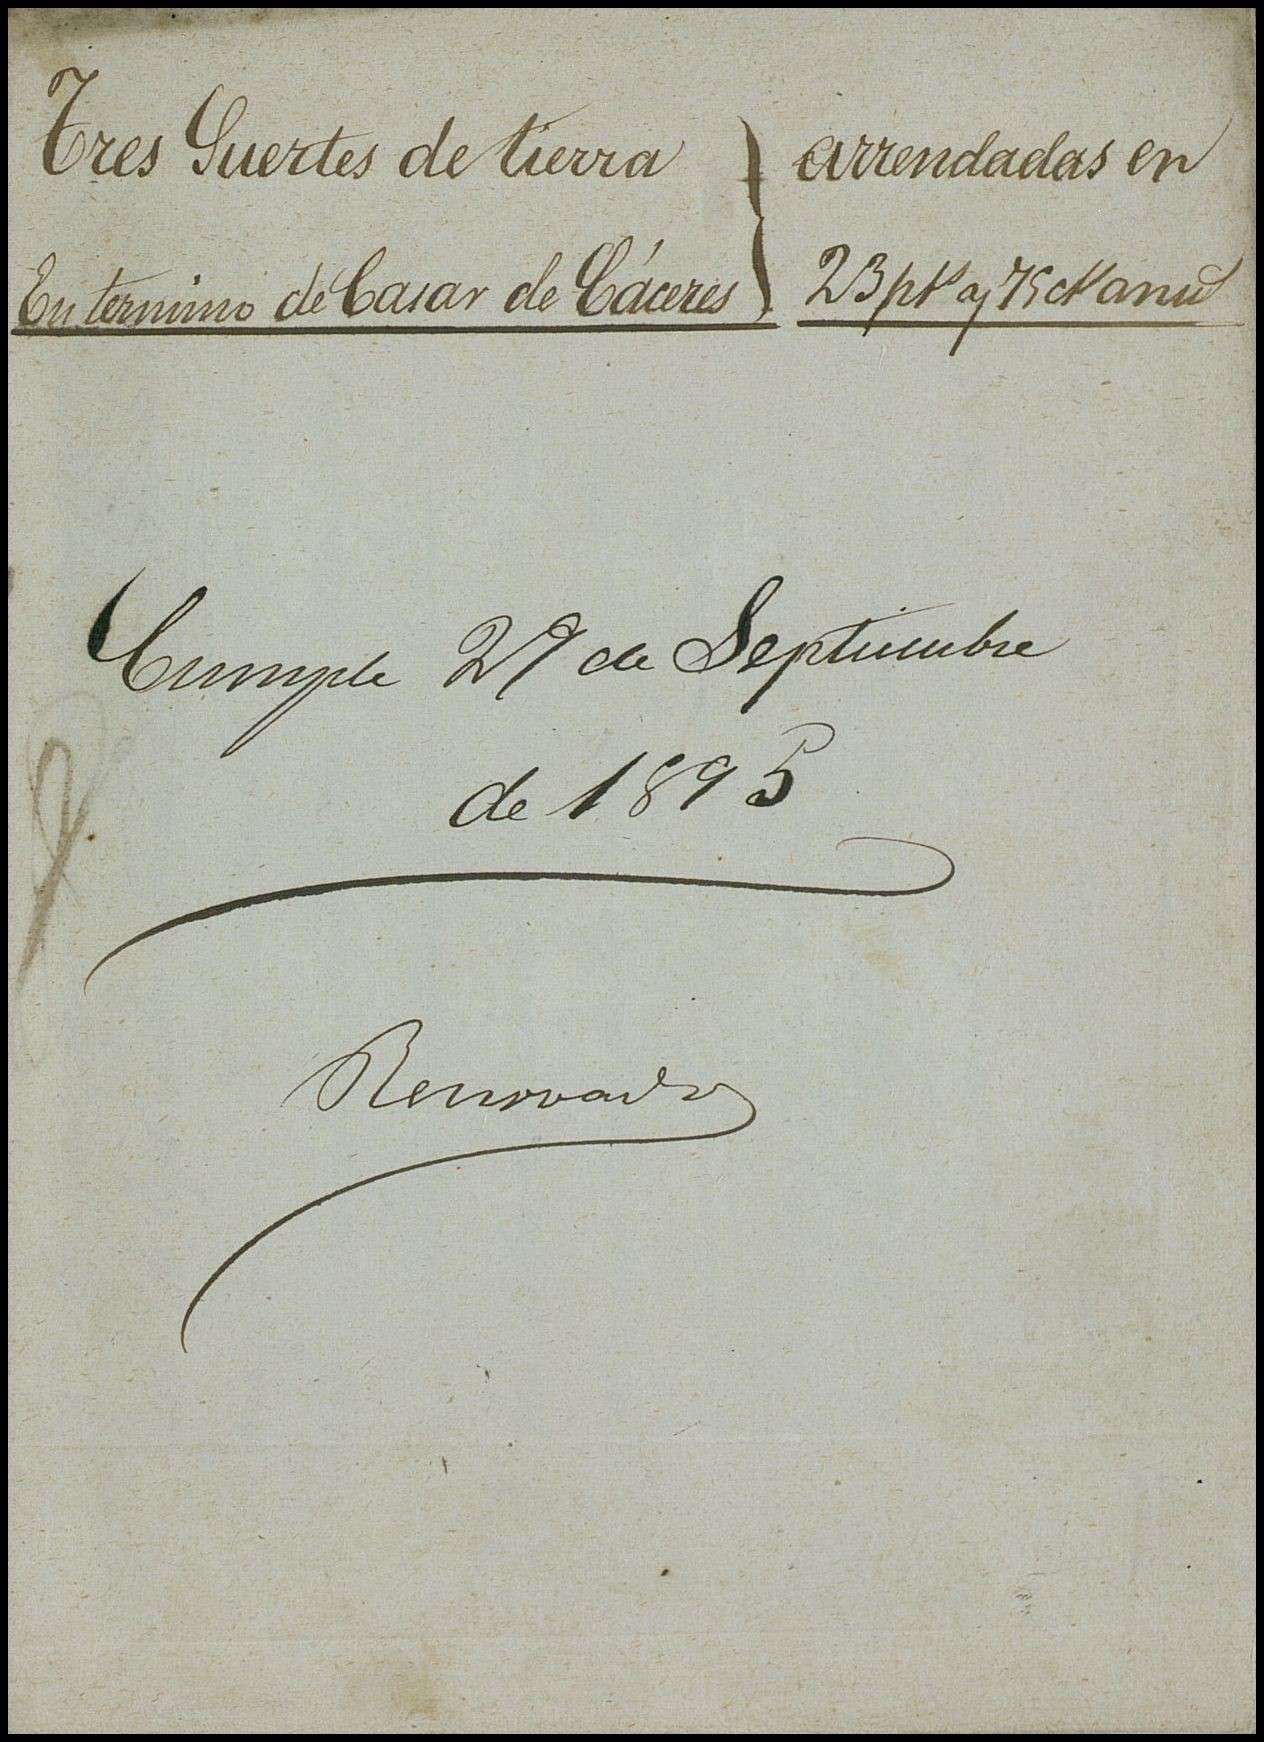 Tres Suertes de tierra } arrendadas en
En termino de Casar de Cáceres } 23 pts y 75 cts anul
Cumple 29 de Septiembre
de 1895
Renovado